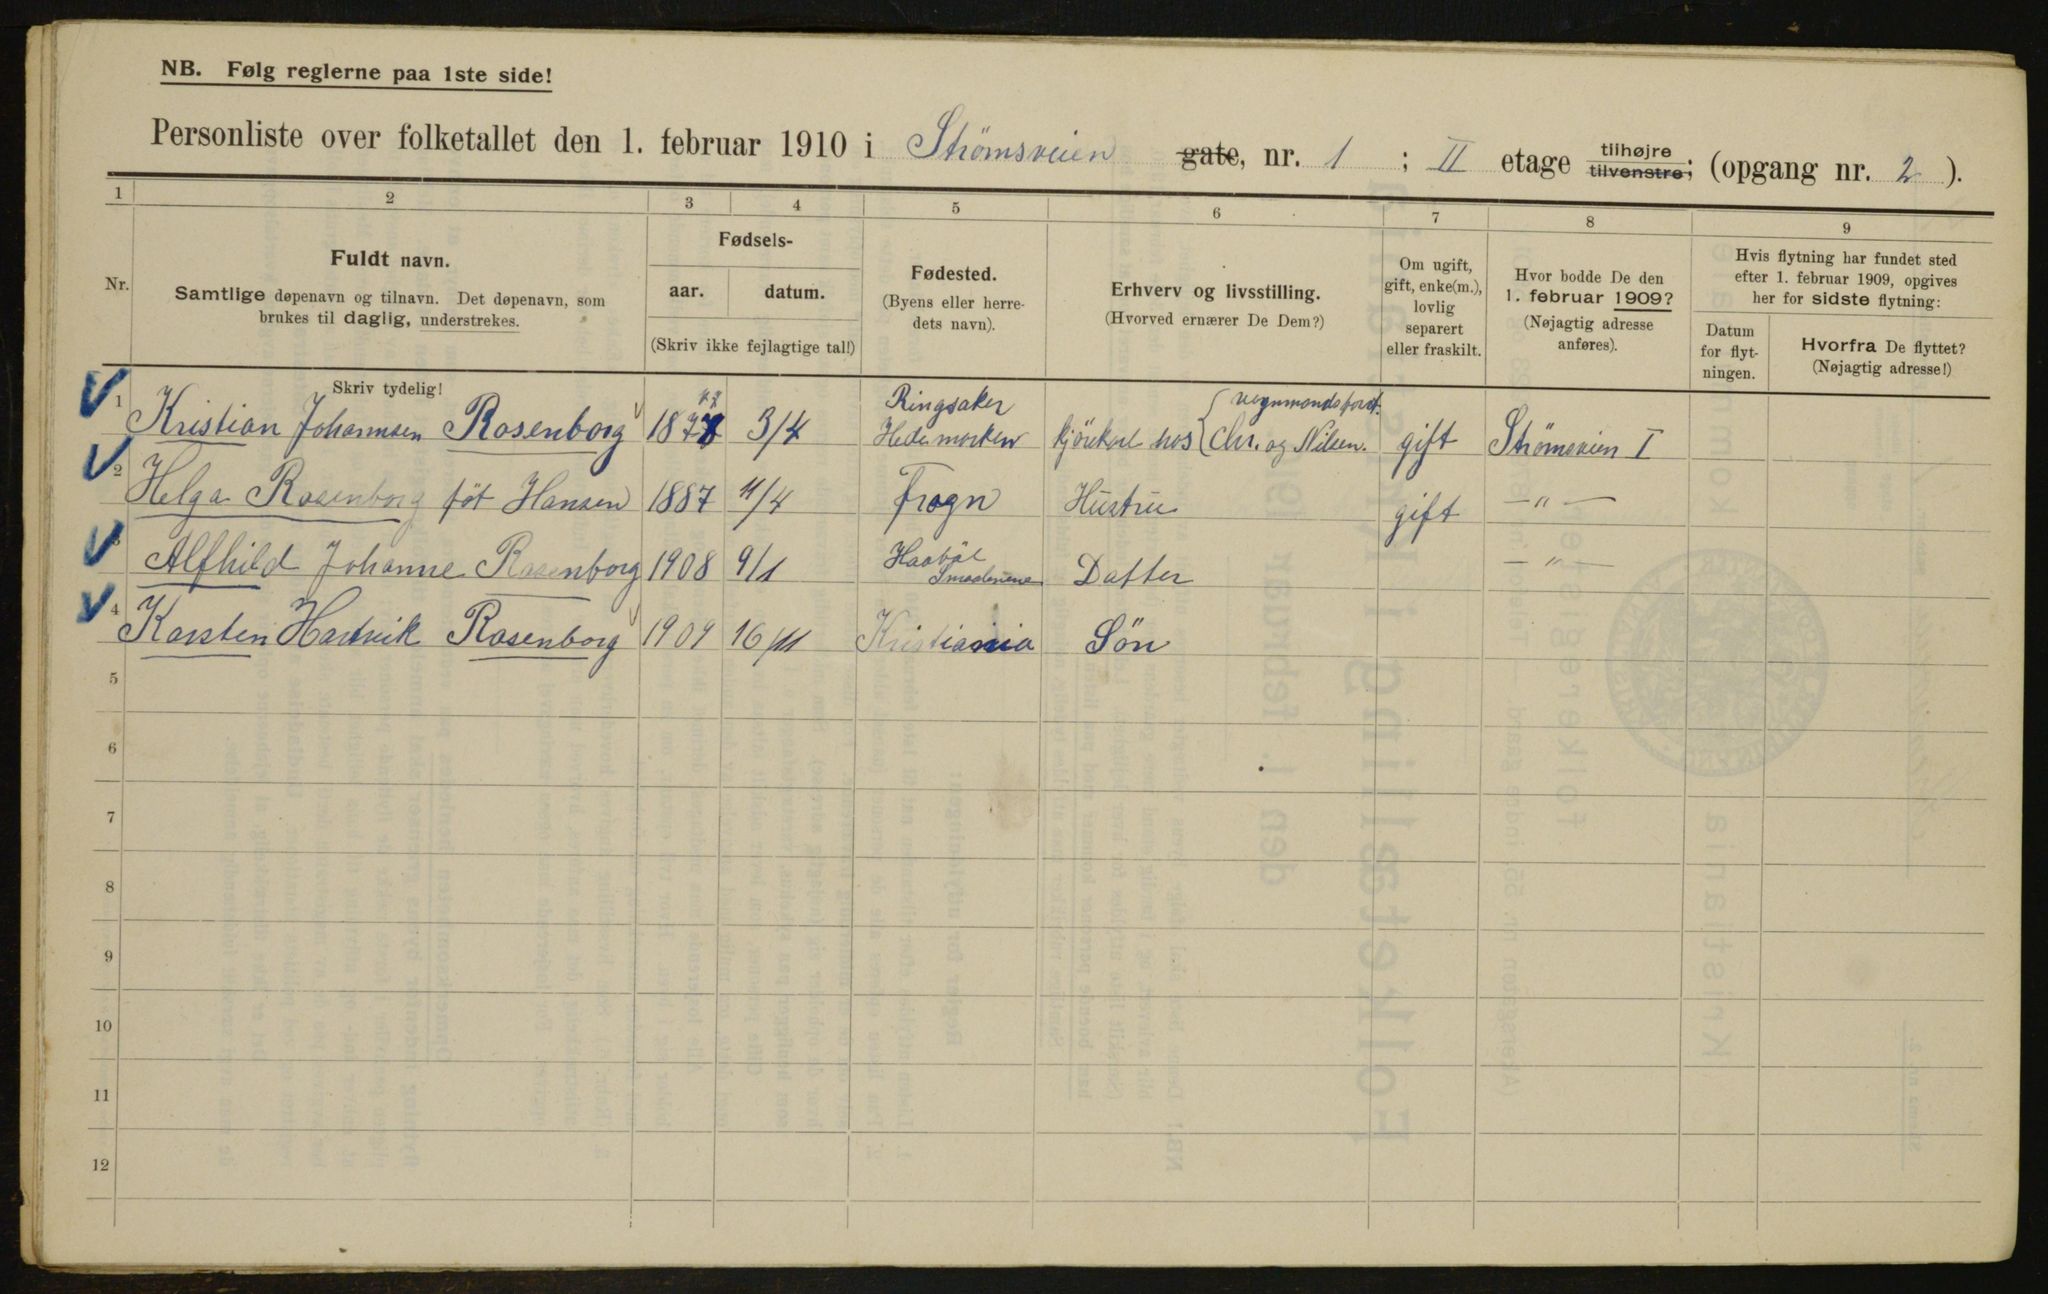 NB. Følg reglerne paa 1ste side!
Personliste over folketallet den 1. februar 1910 i Strømsveien gate, nr. 1 ; II etage tilhøjre tilvenstre; (opgang nr. 2 ).
1 2 3 4 5 6 7 8 9
Nr.
Fuldt navn.
Samtlige døpenavn og tilnavn. Det døpenavn, som
brukes til daglig, understrekes.
Skriv tydelig!
Fødsels-
aar. datum.
(Skriv ikke fejlagtige tal!)
Fødested.
(Byens eller herre-
dets navn).
Erhverv og livsstilling.
(Hvorved ernærer De Dem?)
Om ugift,
gift, enke(m.),
lovlig
separert
eller fraskilt.
Hvor bodde De den
1. februar 1909?
(Nøjagtig adresse
anføres).
Hvis flytning har fundet sted
efter 1. februar 1909, opgives
her for sidste flytning:
Datum
for flyt-
ningen.
Hvorfra De flyttet?
(Nøjagtig adresse!)
1 Kristian Johannsen Rosenborg 3/4 Ringsaker Hedemorken hos Chr. og Nilsen. gift Strømsveien I
2 Helga Rosenborg föt Hansen 1887 11/4 Frogn Hustru gift — " —
3 Alfhild Johanne Rosenborg 1908 9/1 Haaböl Datter — " —
4 Karsten Hartvik Rosenborg 1909 16/11 Kristiania Sön
5
6
7
8
9
10
11
12